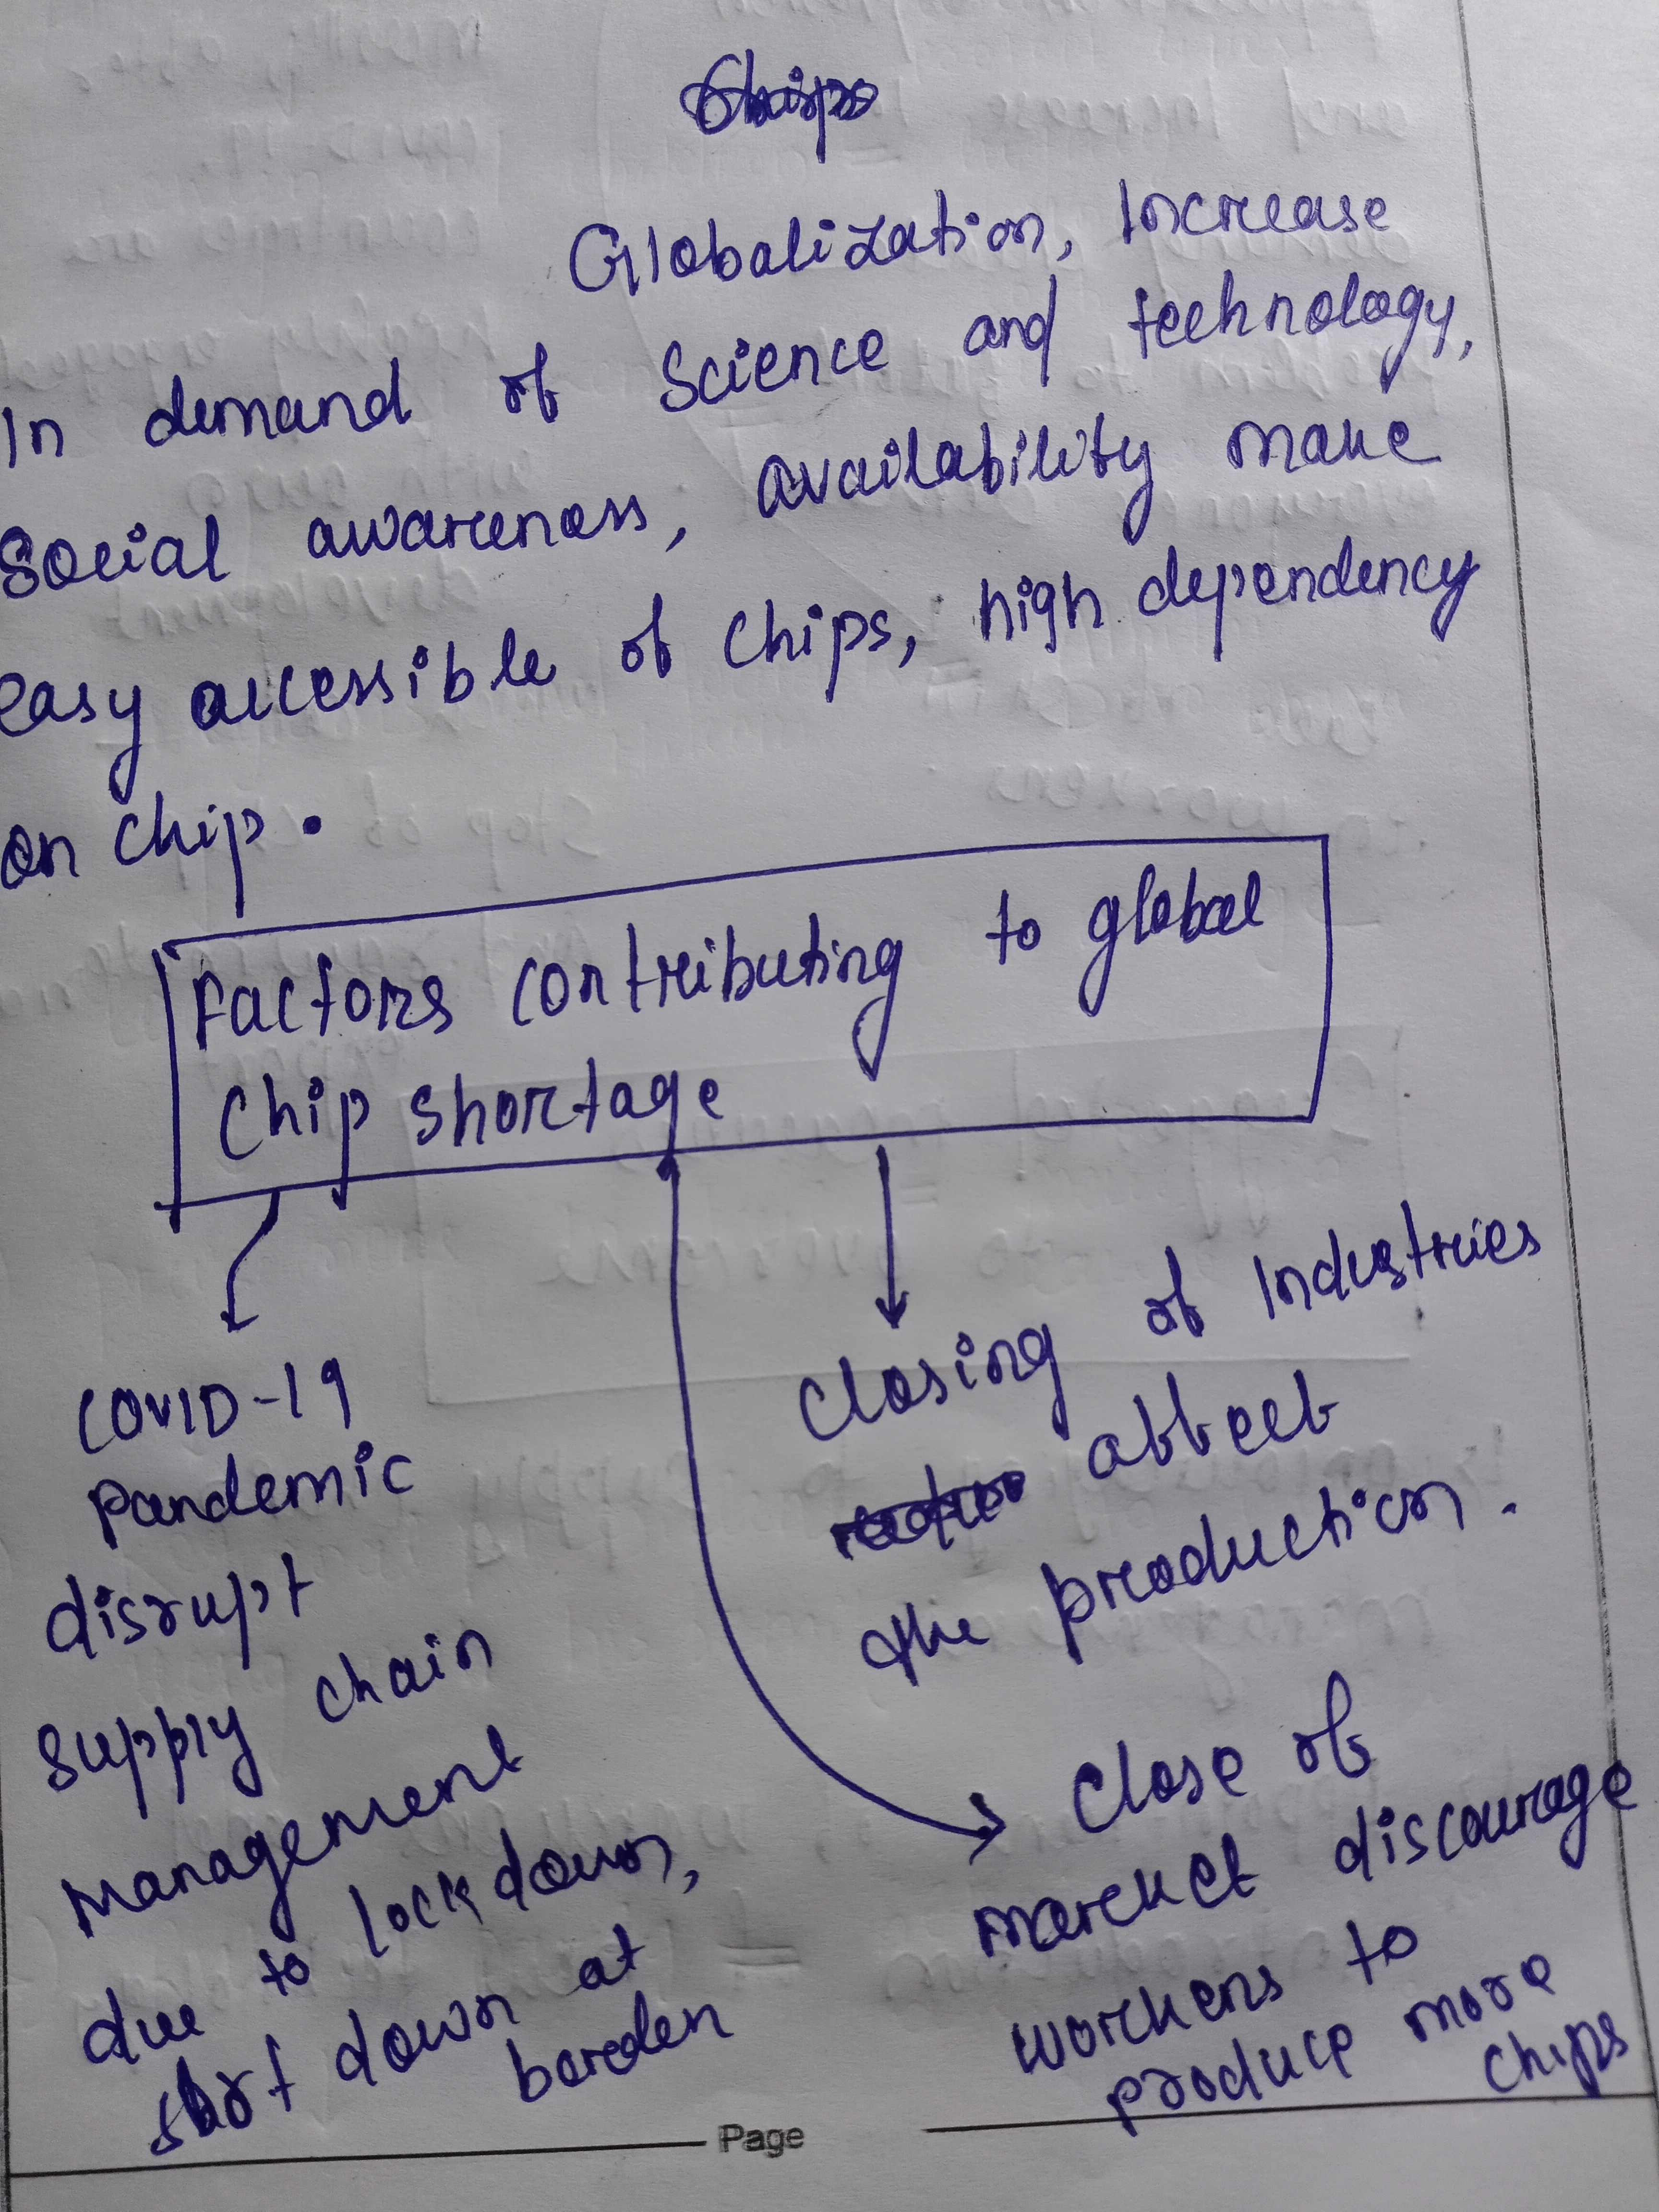 Globalization, Increase
In demand of Science and technology,
Social awareness, availability make
easy accessible of Chips, high dependency
on chip.
Factors contributing to global
Chip shortage
COVID-19
Pandemic
disrupt
supply chain
management
due to lockdown,
down at
border
Closing of Industries
affect
the production.
Close of
market discourage
workers to
produce more
chips
Page